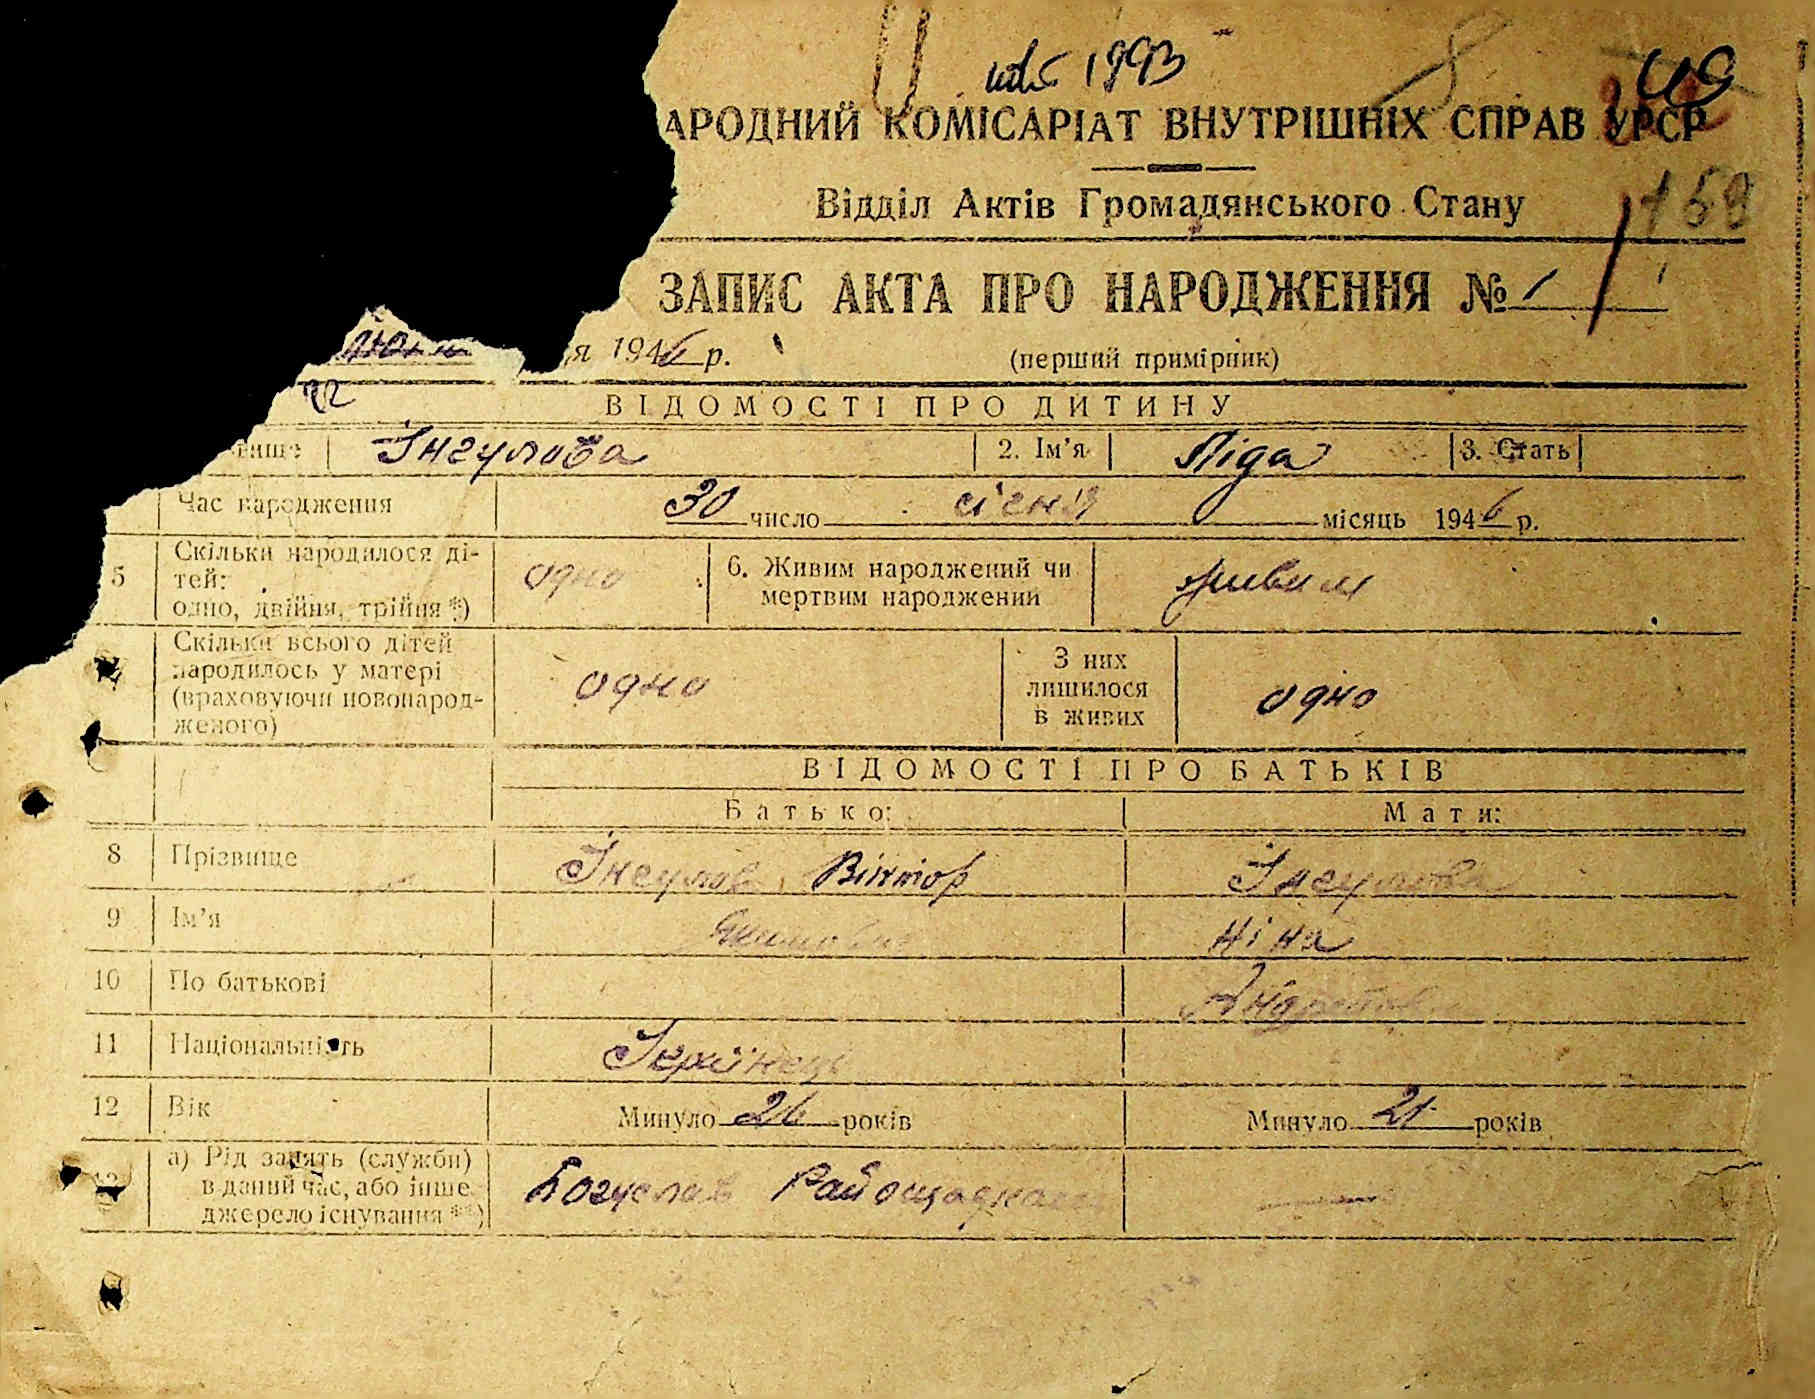 1993
АРОДНИЙ КОМІСАРІАТ ВНУТРІШНІХ СПРАВ УРСР
159
Відділ Актів Громадянського Стану
ЗАПИС АКТА ПРО НАРОДЖЕННЯ № 1
я 1946 р. (перший примірник)
ВІДОМОСТІ ПРО ДИТИНУ
вище Інгулова 2. Ім'я Ліда 3. Стать
Час народження 30 число січня місяць 1946 р.
5 Скільки народилося ді-
тей:
одно, двійня, трійня *) одно 6. Живим народжений чи
мертвим народжений живим
Скільки всього дітей
народилось у матері
(враховуючи новонарод-
женого) одно З них
лишилося
в живих одно
ВІДОМОСТІ ПРО БАТЬКІВ
Батько: Мати:
8 Прізвище Інгулов Віктор Інгулова
9 Ім'я Ніна
10 По батькові
11 Національність
12 Вік Минуло 26 років Минуло 21 років
13 а) Рід занять (служби)
в даний час, або інше
джерело існування **) Богуслав